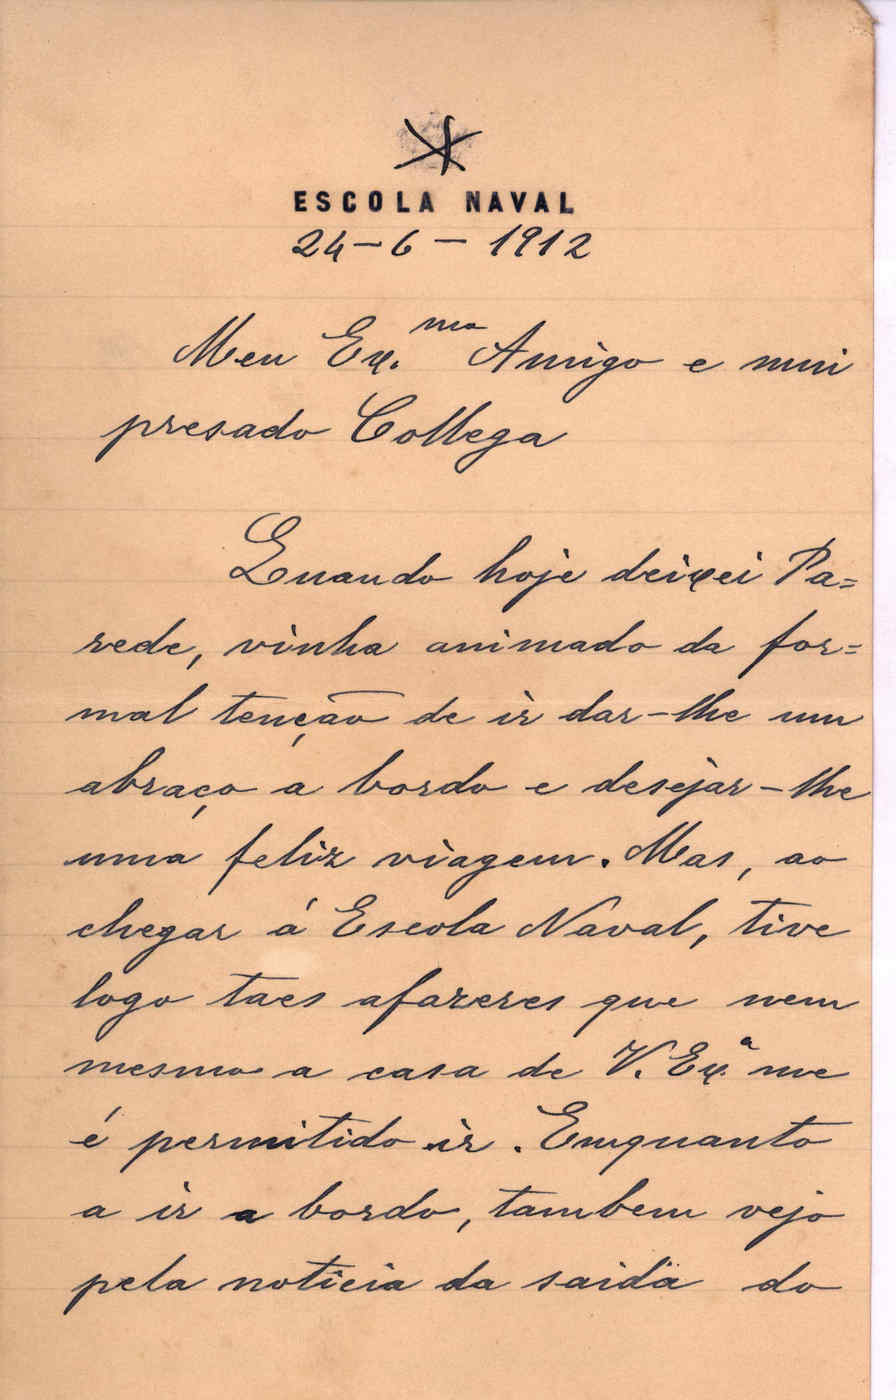 ESCOLA NAVAL
24-6-1912
Meu Ex.mo Amigo e mui
presado Collega
Quando hoje deixei Pa=
rede, vinha animado da for=
mal tenção de ir dar-lhe um
abraço a bordo e desejar-lhe
uma feliz viagem. Mas, ao
chegar á Escola Naval, tive
logo taes afazeres que nem
mesmo a casa de V. Ex.a me
é permitido ir. Emquanto
a ir a bordo, tambem vejo
pela noticia da saida do